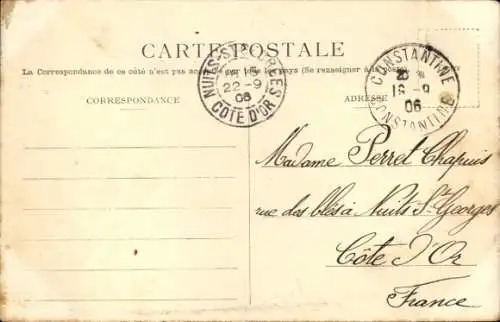 CARTE POSTALE
La Correspondance de ce côté n'est pas acceptée par tous les pays (Se renseigner à la
CORRESPONDANCE
ADRESSE
NUITS-ST GEORGES
22-9
06
CÔTE D'OR
CONSTANTINE
18-9
06
CONSTANTINE
Madame Perret Chapuis
rue des blés à Nuits St Georges
Côte d'Or
France